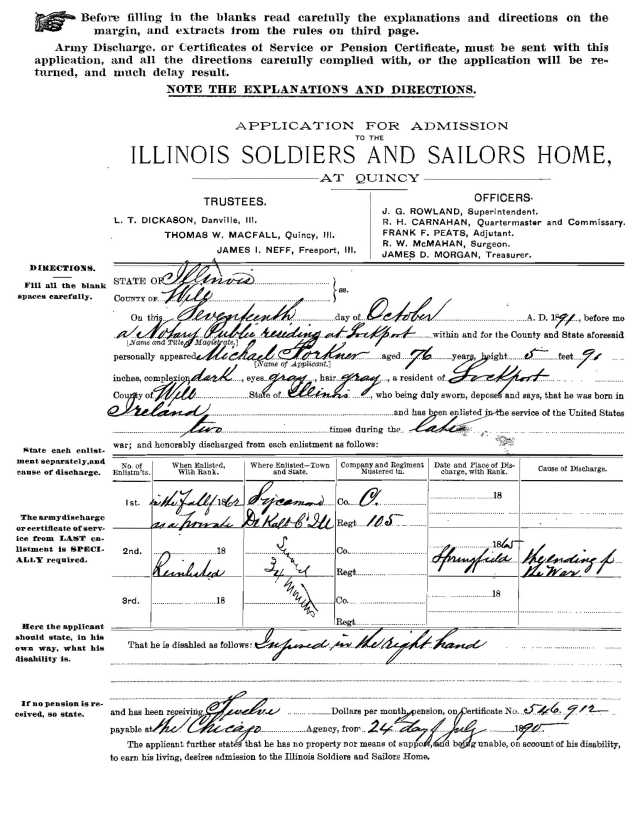 Before filling in the blanks read carefully the explanations and directions on the
margin, and extracts from the rules on third page.
Army Discharge, or Certificates of Service or Pension Certificate, must be sent with this
application, and all the directions carefully complied with, or the application will be re-
turned, and much delay result.
NOTE THE EXPLANATIONS AND DIRECTIONS.
APPLICATION FOR ADMISSION
TO THE
ILLINOIS SOLDIERS AND SAILORS HOME,
AT QUINCY
TRUSTEES.
L. T. DICKASON, Danville, Ill.
THOMAS W. MACFALL, Quincy, Ill.
JAMES I. NEFF, Freeport, Ill.
OFFICERS.
J. G. ROWLAND, Superintendent.
R. H. CARNAHAN, Quartermaster and Commissary.
FRANK F. PEATS, Adjutant.
R. W. McMAHAN, Surgeon.
JAMES D. MORGAN, Treasurer.
DIRECTIONS.
Fill all the blank
spaces carefully.
STATE OF Illinois } ss.
COUNTY OF Will
On this Seventeenth day of October A. D. 1891, before me
a Notary Public residing at Lockport within and for the County and State aforesaid
[Name and Title of Magistrate.]
personally appeared Michael aged 76 years, height 5 feet 9
[Name of Applicant.]
inches, complexion dark, eyes gray, hair gray, a resident of Lockport
County of Will State of Illinois, who being duly sworn, deposes and says, that he was born in
Ireland and has been enlisted in the service of the United States
two times during the late
war; and honorably discharged from each enlistment as follows:
State each enlist-
ment separately, and
cause of discharge.
No. of Enlistm'ts. When Enlisted, With Rank. Where Enlisted—Town and State. Company and Regiment Mustered in. Date and Place of Discharge, with Rank. Cause of Discharge.
1st. in the Fall 1862 Sycamore Co. C. 18
as a private De Kalb Co Ill Regt 105
The army discharge
or certificate of serv-
ice from LAST en-
listment is SPECI-
ALLY required.
2nd. 18 Served 34 months Co. 1865 the ending of
Reinlisted Regt. Springfield the War
3rd. 18 Co. 18
Regt.
Here the applicant
should state, in his
own way, what his
disability is.
That he is disabled as follows: Injured in the right hand
If no pension is re-
ceived, so state.
and has been receiving Twelve Dollars per month pension, on Certificate No. 546.912
payable at the Chicago Agency, from 24th day of July 1890.
The applicant further states that he has no property nor means of support, and being unable, on account of his disability,
to earn his living, desires admission to the Illinois Soldiers and Sailors Home.